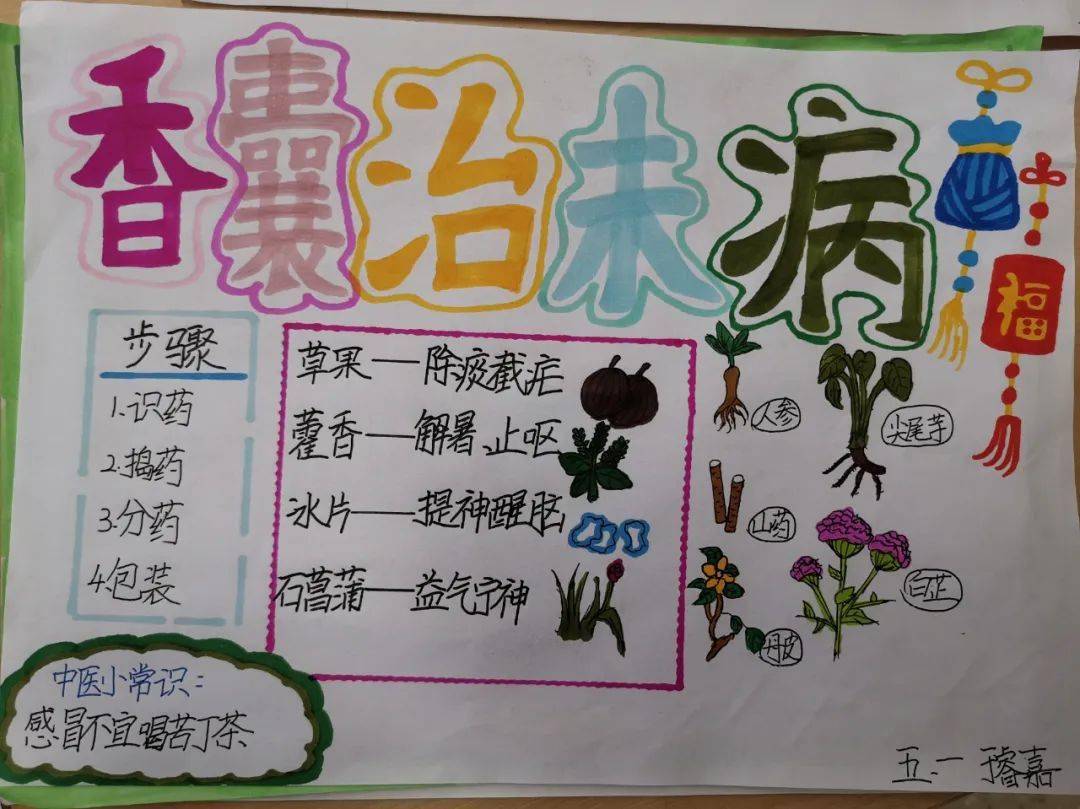 香囊治未病
福
步骤
1.识药
2.捣药
3.分药
4.包装
草果——除痰截疟
藿香——解暑、止呕
冰片——提神醒脑
石菖蒲——益气宁神
人参
尖尾芋
山药
白芷
丹皮
中医小常识:
感冒不宜喝苦丁茶
五.一 于睿嘉